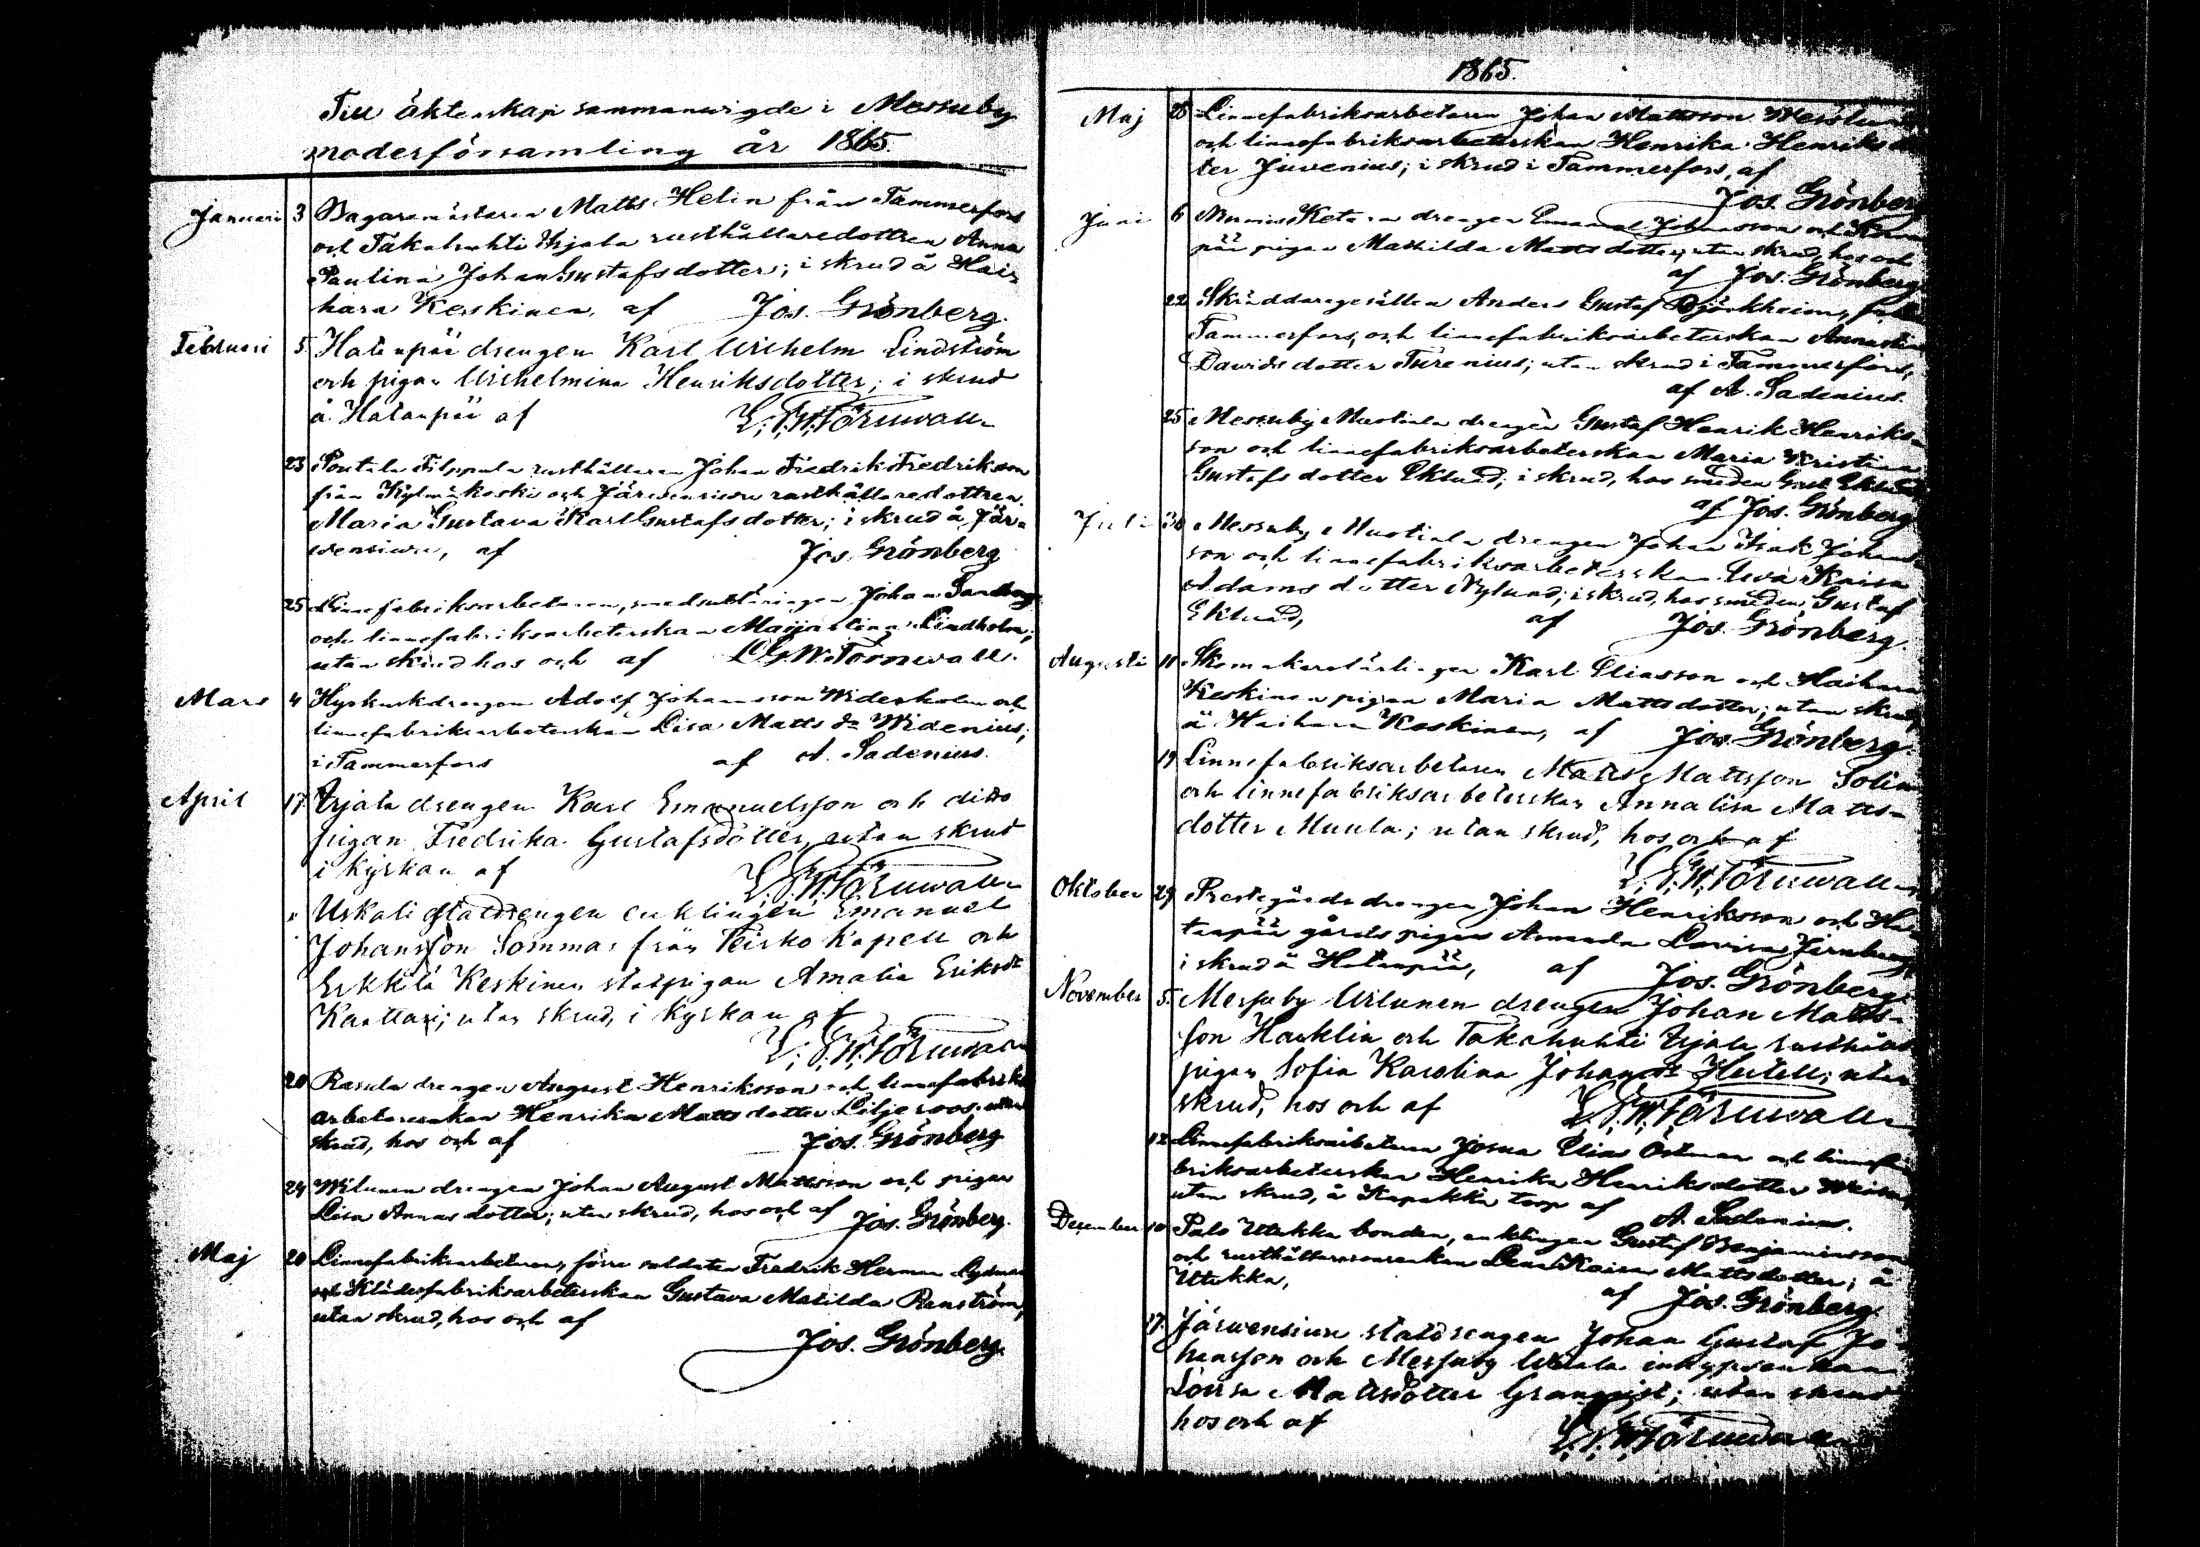 Till äktenskap sammanwigde i Messuby
moderförsamling år 1865.
Januari 3 Bagaremästaren Matts Helin från Tammerfors
och Takahuhti Uijala rusthållaredottren Anna
Paulina Johan Gustafsdotter; i skrud å Hai-
hara Keskinen, af Jos. Grönberg.
Februari 5. Hatanpää drengen Karl Wilhelm Lindström
och pigan Wilhelmina Henriksdotter; i skrud
å Hatanpää af L. G. W. Törnwall
23 Pontela Filppula rusthållaren Johan Fredrik Fredriksson
från Kylmäkoski och Järwensiwu rusthållaredottren
Maria Gustava Karl Gustafsdotter; i skrud å Jär-
wensiwu, af Jos. Grönberg
25 Linnefabriksarbetaren, smedsutläringen Johan Sandberg
och linnefabriksarbeterskan Maijastina Lindholm;
utan skrud hos och af L G W. Törnwall.
Mars 4 Hyrkuskdrengen Adolf Johansson Widerholm och
linnefabriksarbeterskan Lisa Matts dr Widenius;
i Tammerfors af A. Sadenius.
April 17. Uijala drengen Karl Emanuelsson och ditto
pigan Fredrika Gustafsdotter, utan skrud
i kyrkan af L. G. W. Törnwall
" Uskali statdrengen enklingen Emanuel
Johansson Sommar från Teisko kapell och
Erkkilä Keskinen statpigan Amalia Eriksdr
Kaattari; utan skrud, i kyrkan af
L. G. W. Törnwall
20 Rasula drengen August Henriksson och linnefabriks
arbeterskan Henrika Mattsdotter Liljeroos. utan
skrud, hos och af Jos. Grönberg
24 Wilunen drengen Johan August Mattsson och pigan
Lisa Annasdotter; utan skrud, hos och af Jos. Grönberg.
Maj 20 Linnefabriksarbetaren, förre soldaten Fredrik Herman
och Klädesfabriksarbeterskan Gustava Matilda Renström,
utan skrud, hos och af
Jos. Grönberg.
1865.
Maj 28 Linnefabriksarbetaren Johan Mattsson
och linnefabriksarbeterskan Henrika Henriksdot
ter Juvenius; i skrud i Tammerfors, af
Jos. Grönberg
Juni 6 drengen Emanuel Johansson och
pää pigan Mathilda Mattsdotter, utan skrud, hos och
af Jos. Grönberg
22 Skräddaregesällen Anders Gustaf Björkheim, från
Tammerfors, och linnefabriksarbeterskan Annastina
Davidsdotter Turenius; utan skrud i Tammerfors,
af A. Sadenius.
25 Messuby Muotiala drengen Gustaf Henrik Henriks-
son och linnefabriksarbeterskan Maria Kristina
Gustafsdotter Eklund; i skrud, hos smeden Gust. Eklund,
af Jos. Grönberg
Juli 30 Messuby Muotiala drengen Johan Isak Johans-
son och linnefabriksarbeterskan Ewa Kaisa
Adamsdotter Nylund; i skrud, hos smeden Gustaf
Eklund, af Jos. Grönberg.
Augusti 11 Skomakarelärlingen Karl Eliasson och Haihara
Keskinen pigan Maria Mattsdotter; utan skrud,
å Haihara Keskinen, af Jos. Grönberg
19 Linnefabriksarbetaren Matts Mattsson Solin
och linnefabriksarbeterskan Annalisa Matts-
dotter Musula; utan skrud, hos och af
L. G. W. Törnwall
Oktober 29 Prestegårds drengen Johan Henriksson och Ha-
tanpää gårds pigan Amanda Lovisa Jernberg,
i skrud å Hatanpää, af Jos. Grönberg
November 5. Messuby Wilunen drengen Johan Matts-
son Hacklin och Takahuhti Uijala rusthålls
pigan Sofia Karolina Johansdr Hertell; utan
skrud, hos och af L. G. W. Törnwall
12 Linnefabriksarbetaren Josua Elias Östman och linnefa-
briksarbeterskan Henrika Henriksdotter
utan skrud, å Kapakka torp af A. Sadenius.
December 10 Palo Utukka bonden, enklingen Gustaf Benjaminsson
och rusthållaresonenkan Lena Kaisa Mattsdotter; å
Utukka, af Jos. Grönberg.
17. Järwensiwu statdrengen Johan Gustaf Jo-
hansson och Messuby inhysesenkan
Lovisa Mattsdotter Granqvist; utan skrud
hos och af L. G. W. Törnwall